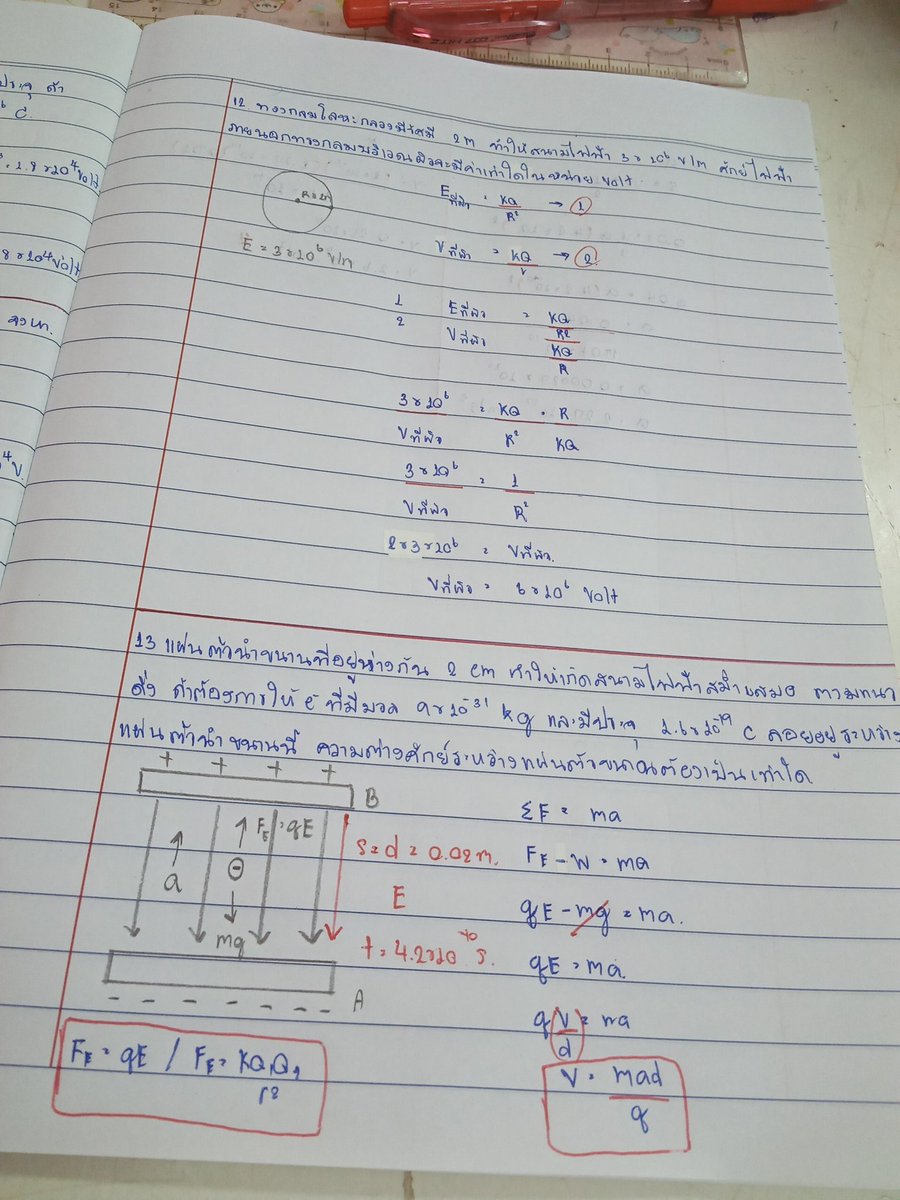 ประจุ ตัว
C.
1.8 x 10⁴ Volt
8 x 10⁴ Volt
4 V.
12 ทรงกลมโลหะกลวงมีรัศมี 2 m ทำให้สนามไฟฟ้า 3 x 10⁶ V/m ศักย์ไฟฟ้า
ภายนอกทรงกลมบริเวณผิวจะมีค่าเท่าใดในหน่วย Volt
E ที่ผิว = KQ/R² → ①
E = 3 x 10⁶ V/m
V ที่ผิว = KQ/r → ②
1/2 E ที่ผิว / V ที่ผิว = KQ/R² / KQ/R
3 x 10⁶ / V ที่ผิว = KQ/R² . R/KQ
3 x 10⁶ / V ที่ผิว = 1/R²
2 x 3 x 10⁶ = V ที่ผิว.
V ที่ผิว = 6 x 10⁶ Volt
13 แผ่นตัวนำขนานที่อยู่ห่างกัน 2 cm ทำให้เกิดสนามไฟฟ้าสม่ำเสมอ ตามแนว
ดิ่ง ถ้าต้องการให้ e ที่มีมวล 9 x 10⁻³¹ kg และมีประจุ 1.6 x 10⁻¹⁹ C ลอยอยู่ระหว่าง
แผ่นตัวนำขนานนี้ ความต่างศักย์ระหว่างแผ่นตัวขนานต้องเป็นเท่าใด
+ + + +
B
a
F_E = qE
mg
s = d = 0.02 m.
E
t = 4.2 x 10⁻¹⁰ s.
- - - - - - -
A
ΣF = ma
F_E - W = ma
qE - mg = ma.
qE = ma.
q V/d = ma
V = mad/q
F_E = qE / F_E = KQ₁Q₂/r²